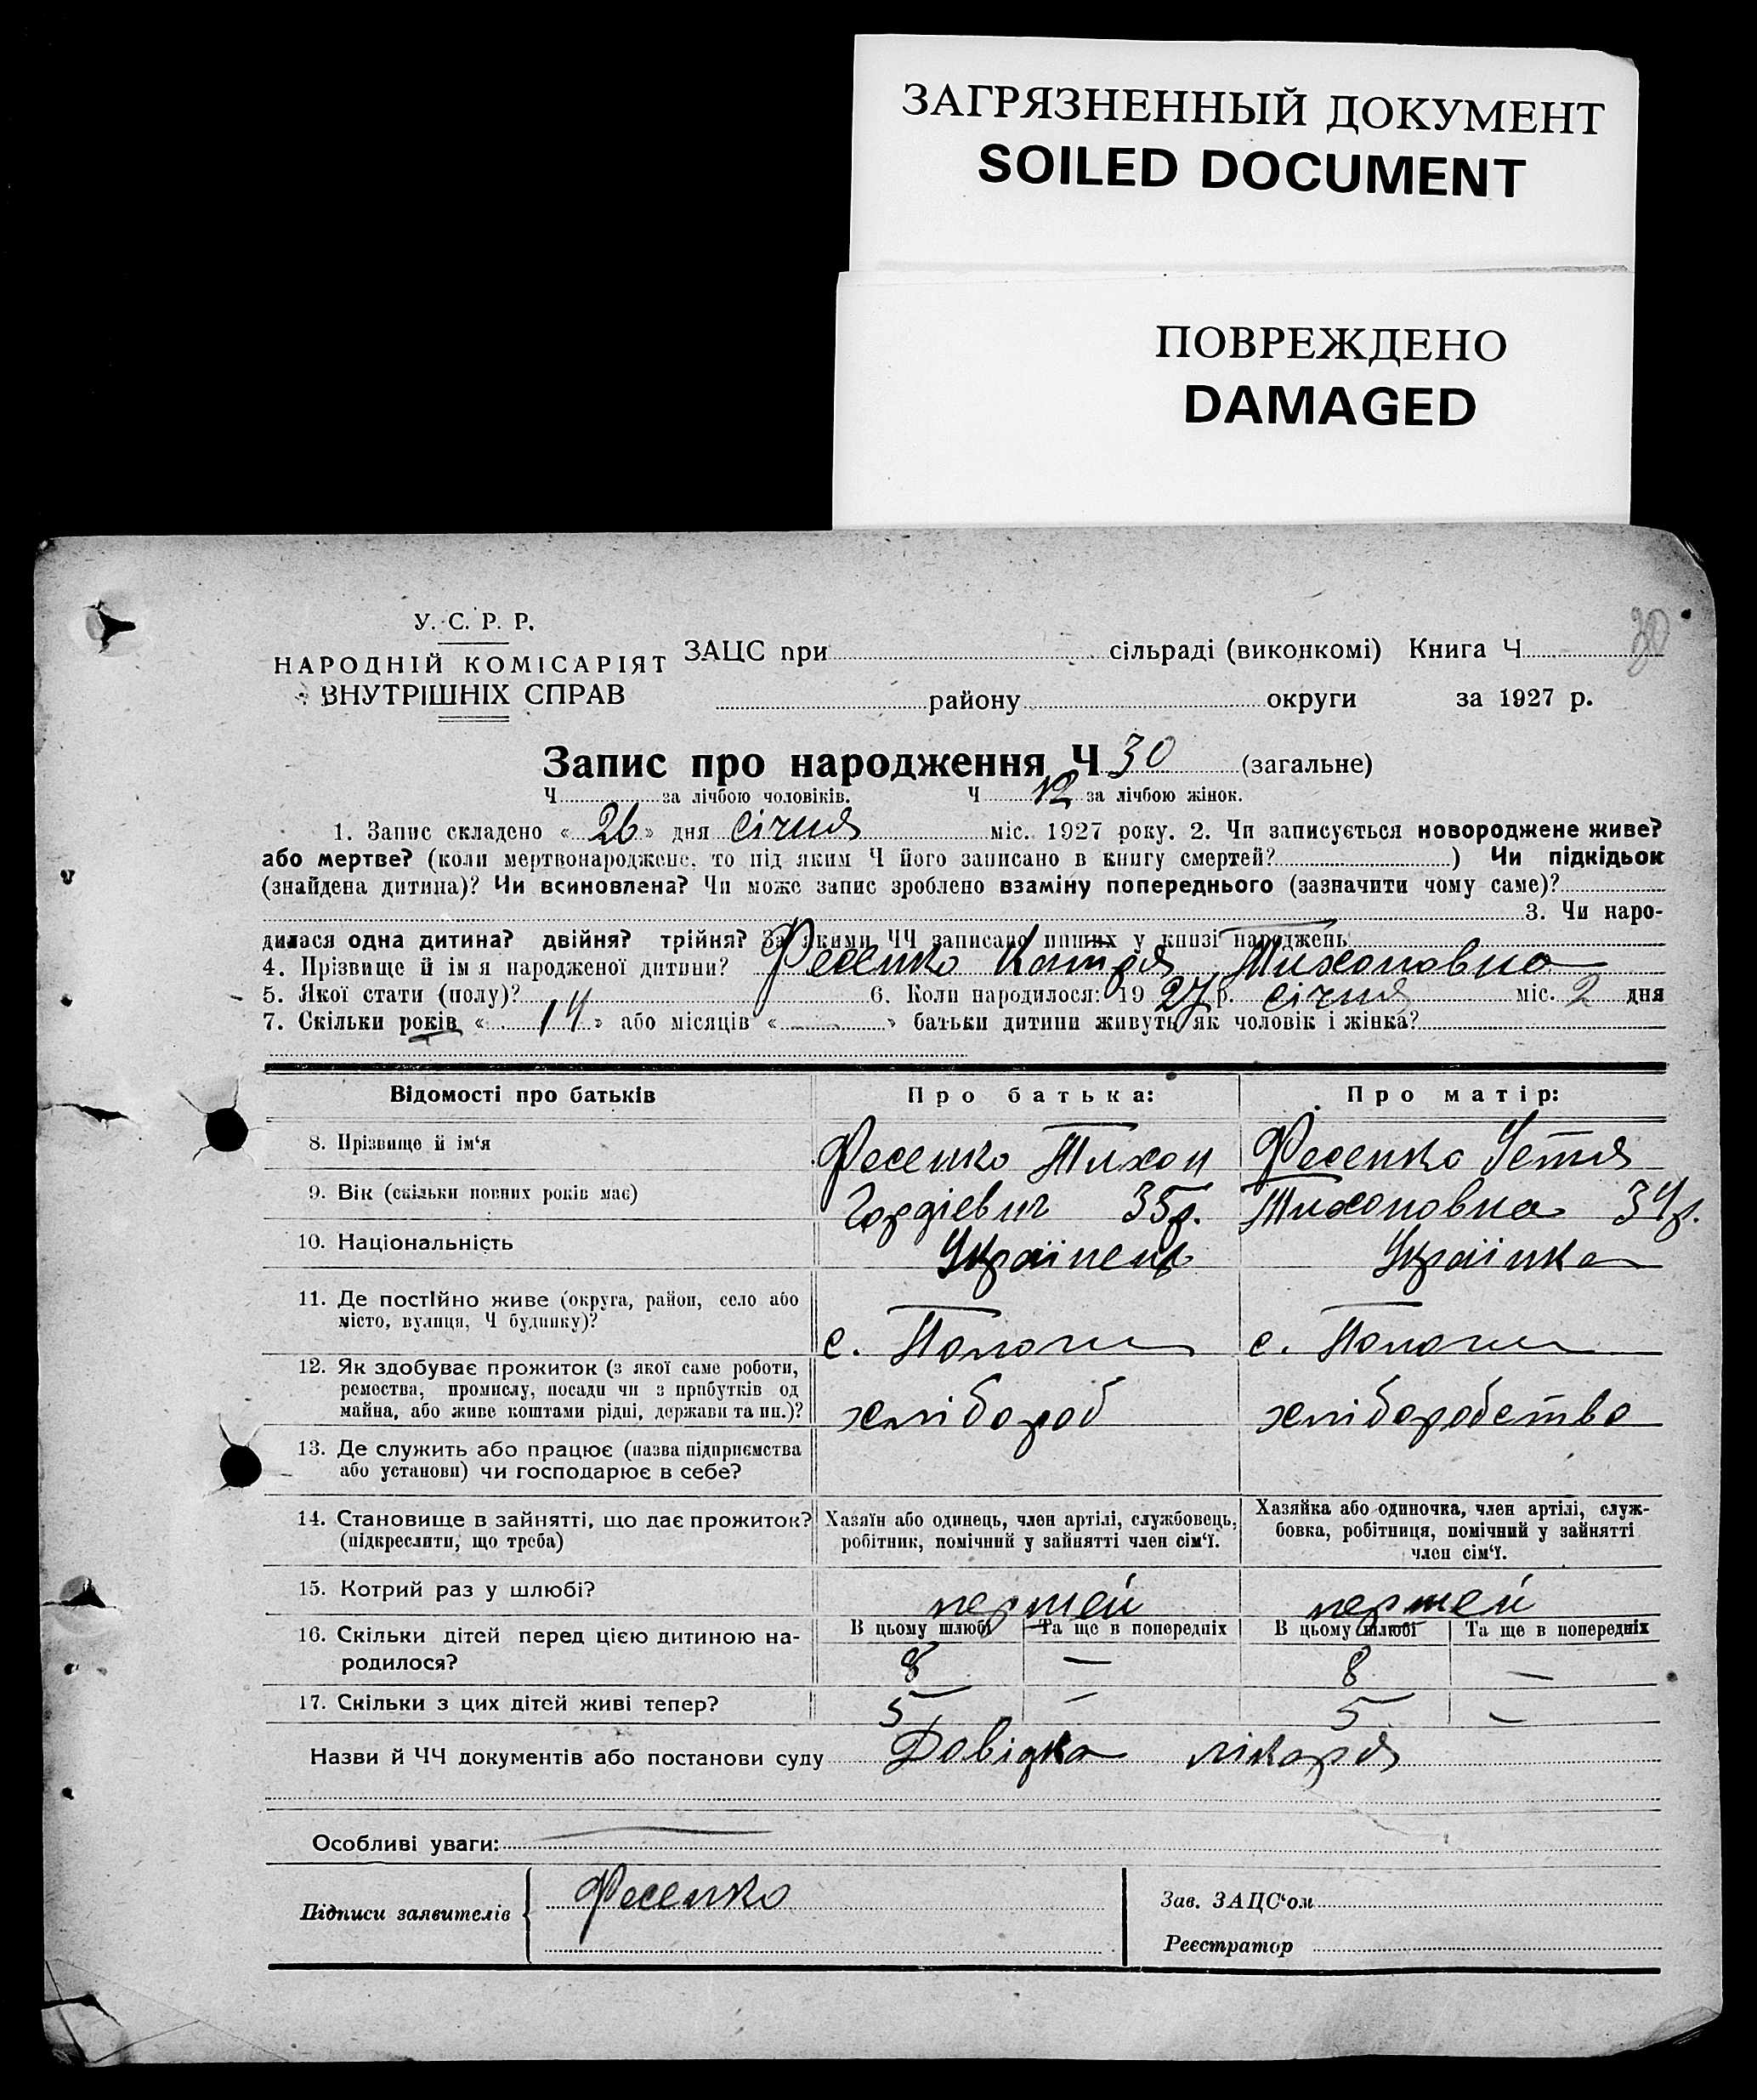 ЗАГРЯЗНЕННЫЙ ДОКУМЕНТ
SOILED DOCUMENT
ПОВРЕЖДЕНО
DAMAGED
30
У. С. Р. Р.
НАРОДНІЙ КОМІСАРІЯТ
ВНУТРІШНІХ СПРАВ
ЗАЦС при сільраді (виконкомі) Книга Ч
району округи за 1927 р.
Запис про народження Ч 30 (загальне)
Ч за лічбою чоловіків. Ч 12 за лічбою жінок.
1. Запис складено « 26 » дня січня міс. 1927 року. 2. Чи записується новороджене живе?
або мертве? (коли мертвонароджене, то під яким Ч його записано в книгу смертей? ) Чи підкідьок
(знайдена дитина)? Чи всиновлена? Чи може запис зроблено взаміну попереднього (зазначити чому саме)?
3. Чи наро-
дилася одна дитина? двійня? трійня? За якими ЧЧ записано инших у книзі народжень
4. Прізвище й ім я народженої дитини? Фесенко Катря Тихоновна
5. Якої стати (полу)? 6. Коли народилося: 19 27 р. січня міс. 2 дня
7. Скільки років « 14 » або місяців « » батьки дитини живуть як чоловік і жінка?
Відомості про батьків
Про батька:
Про матір:
8. Прізвище й ім‘я
Фесенко Тихон
Фесенко Устя
9. Вік (скільки повних років має)
Гордієвич 35р.
Тихоновна 34р.
10. Національність
Українець
Українка
11. Де постійно живе (округа, район, село або
місто, вулиця, Ч будинку)?
с. Пологи
с. Пологи
12. Як здобуває прожиток (з якої саме роботи,
ремества, промислу, посади чи з прибутків од
майна, або живе коштами рідні, держави та ин.)?
хлібороб
хліборобство
13. Де служить або працює (назва підприємства
або установи) чи господарює в себе?
14. Становище в зайнятті, що дає прожиток?
(підкреслити, що треба)
Хазяїн або одинець, член артілі, службовець,
робітник, помічний у зайнятті член сім‘ї.
Хазяйка або одиночка, член артілі, служ-
бовка, робітниця, помічний у зайнятті
член сім‘ї.
15. Котрий раз у шлюбі?
першей
першей
16. Скільки дітей перед цією дитиною на-
родилося?
В цьому шлюбі Та ще в попередніх
В цьому шлюбі Та ще в попередніх
8 —
8 —
17. Скільки з цих дітей живі тепер?
5 —
5 —
Назви й ЧЧ документів або постанови суду Довідка лікаря
Особливі уваги:
Підписи заявителів
Фесенко
Зав. ЗАЦС‘ом
Реєстратор